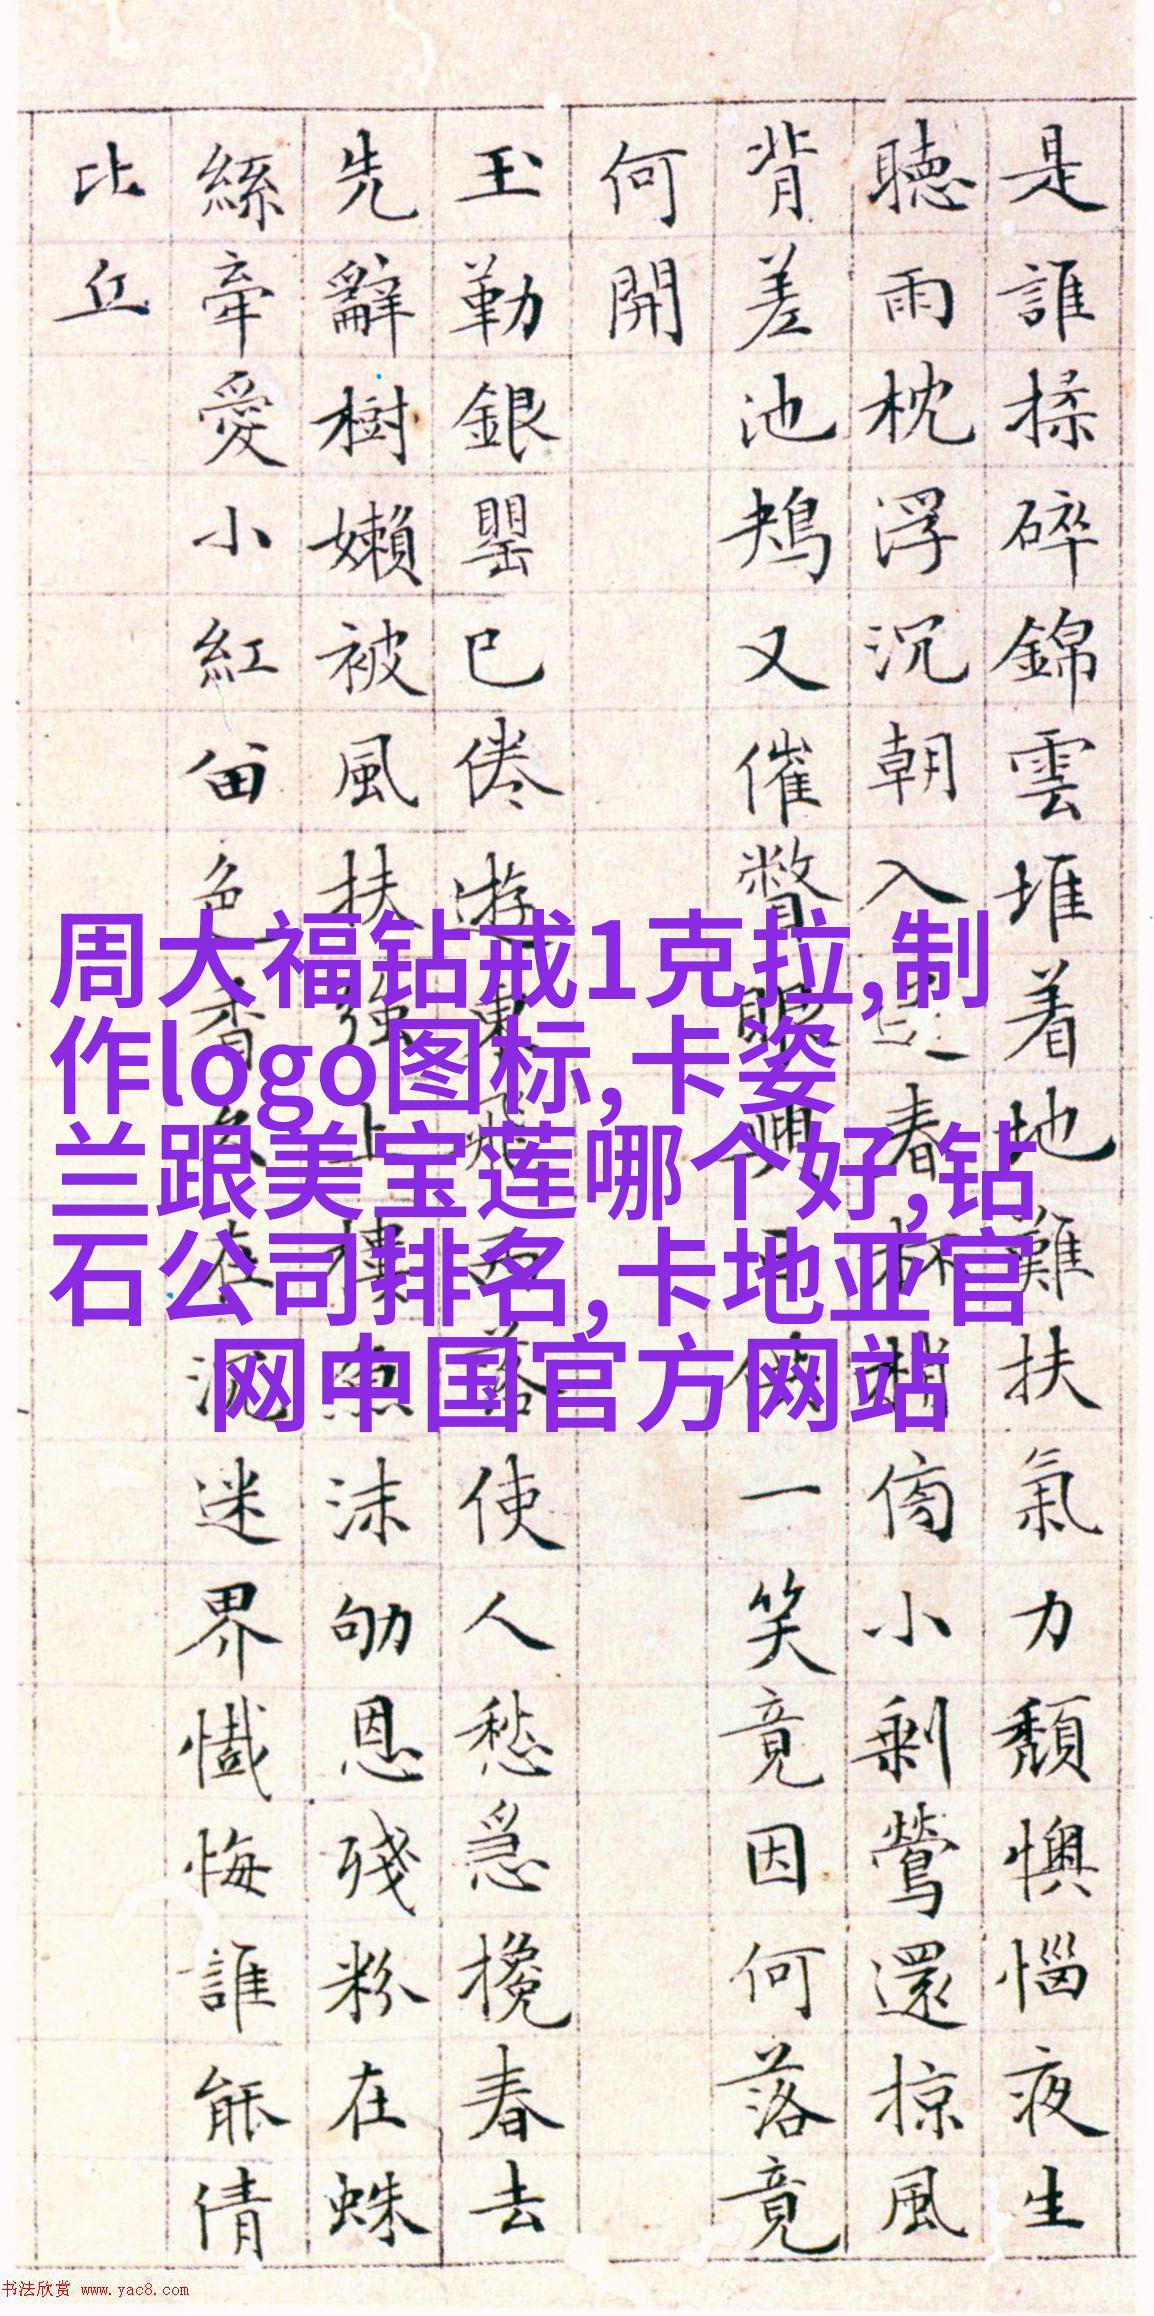 是誰揉碎錦雲堆着地難扶氣力頹懊惱夜生
聽雨枕浮沉朝入春林梢傍小剩鶯還掠風
背差池鴂又催瞥眼興一笑竟因何落竟
何開
玉勒銀罌已倦遊東飛西落使人愁急攙春去
先辭樹嬾被風扶強上樓魚沫劬恩殘粉在蛛
絲牽愛小紅留色香久在沉迷界懺悔誰能倩
比丘
周大福钻戒1克拉,制
作logo图标,卡姿
兰跟美宝莲哪个好,钻
石公司排名,卡地亚官
网中国官方网站
书法欣赏 www.yac8.com